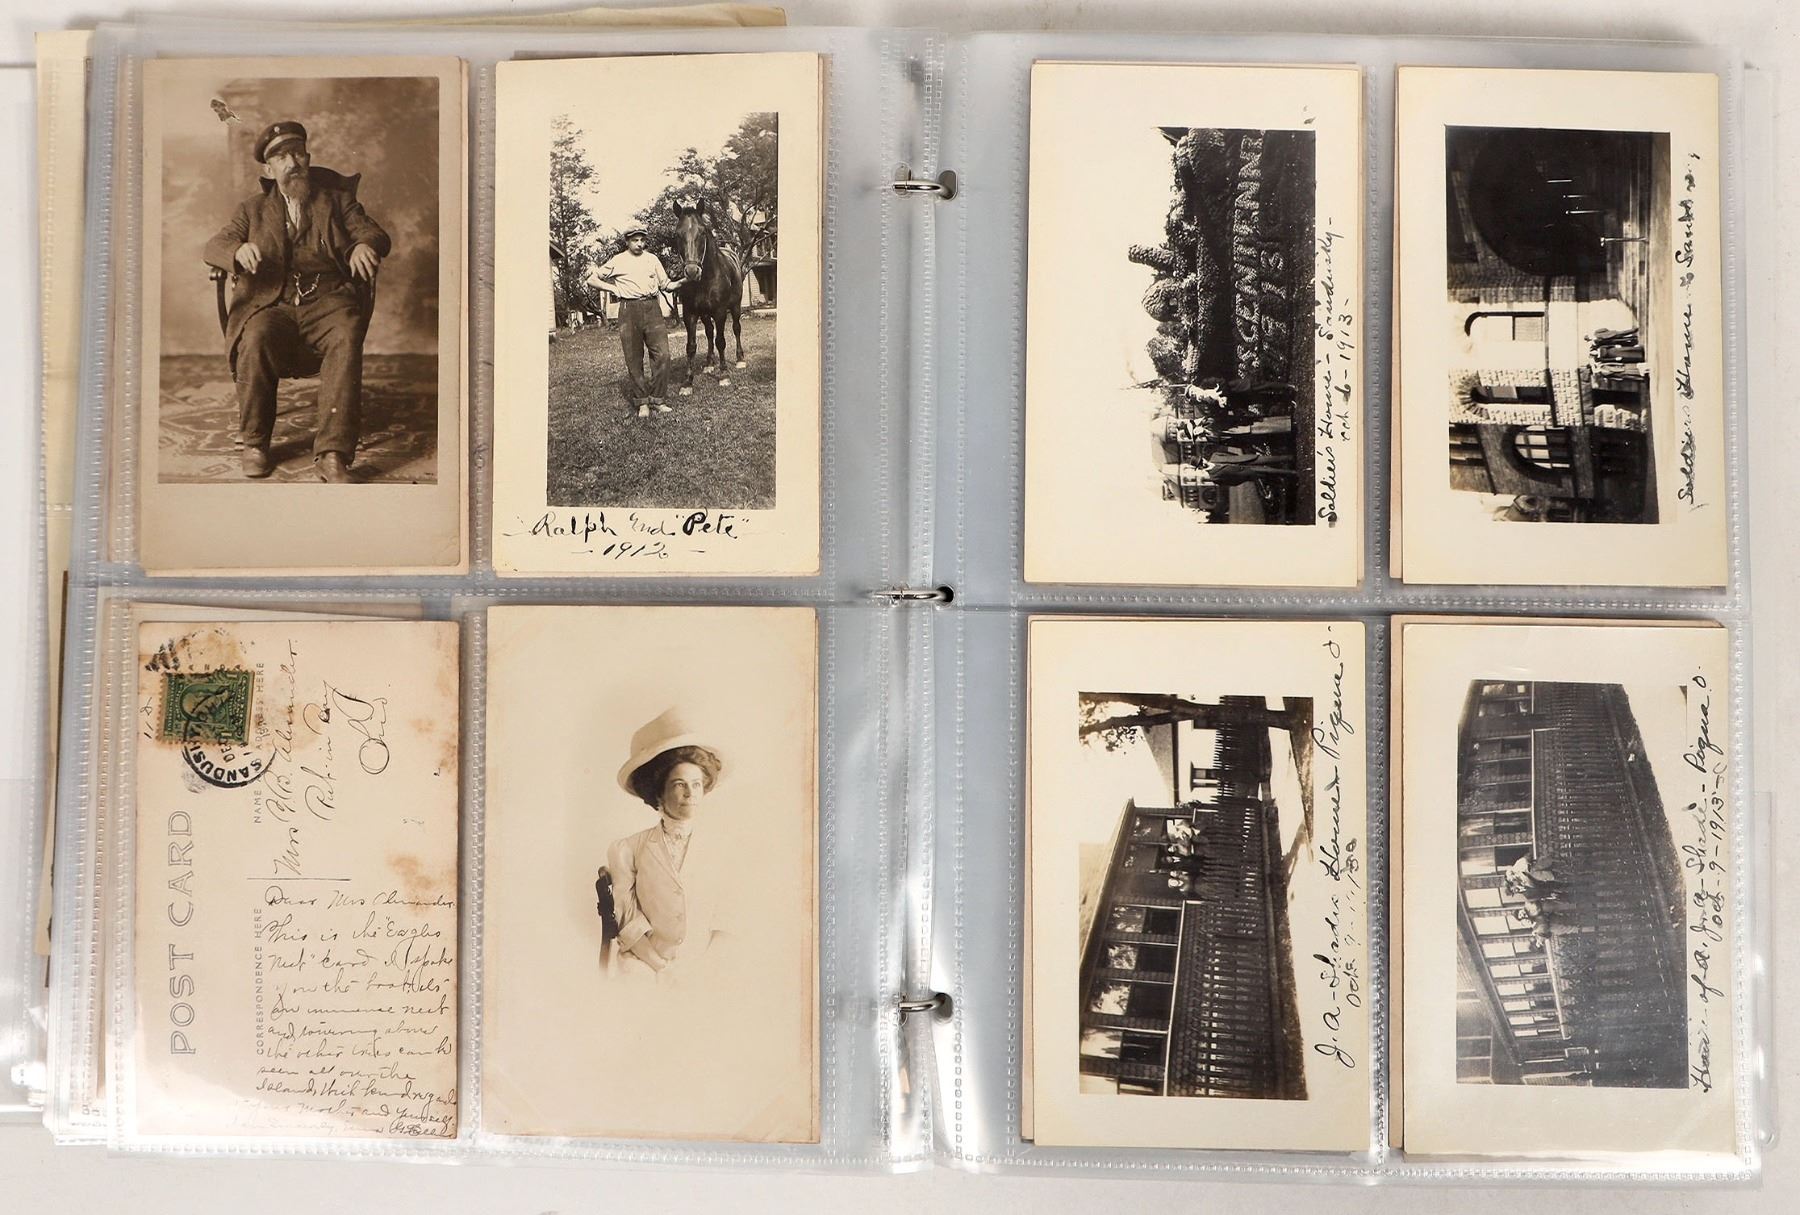 "Ralph "and" "Pete"
- 1912 -
POST CARD
NAME & ADDRESS HERE
Mrs Alexander.
Put in Bay
Ohio.
SANDUSKY
CORRESPONDENCE HERE
Dear Mrs Alexander
This is the "Eagles
Nest" card I spoke
you the
an immense nest
and towering above
the other trees can be
seen all over the
Island, With kind regards
Mother and yourself
SCENTENN
1913
Soldiers Home - Sandusky -
Oct 6 - 1913 -
Soldiers Home - Sandusky
J. A - Shade Home - Piqua O -
Oct 9
Home - of J. A - Shade - Piqua O.
Oct - 9 - 1913 -